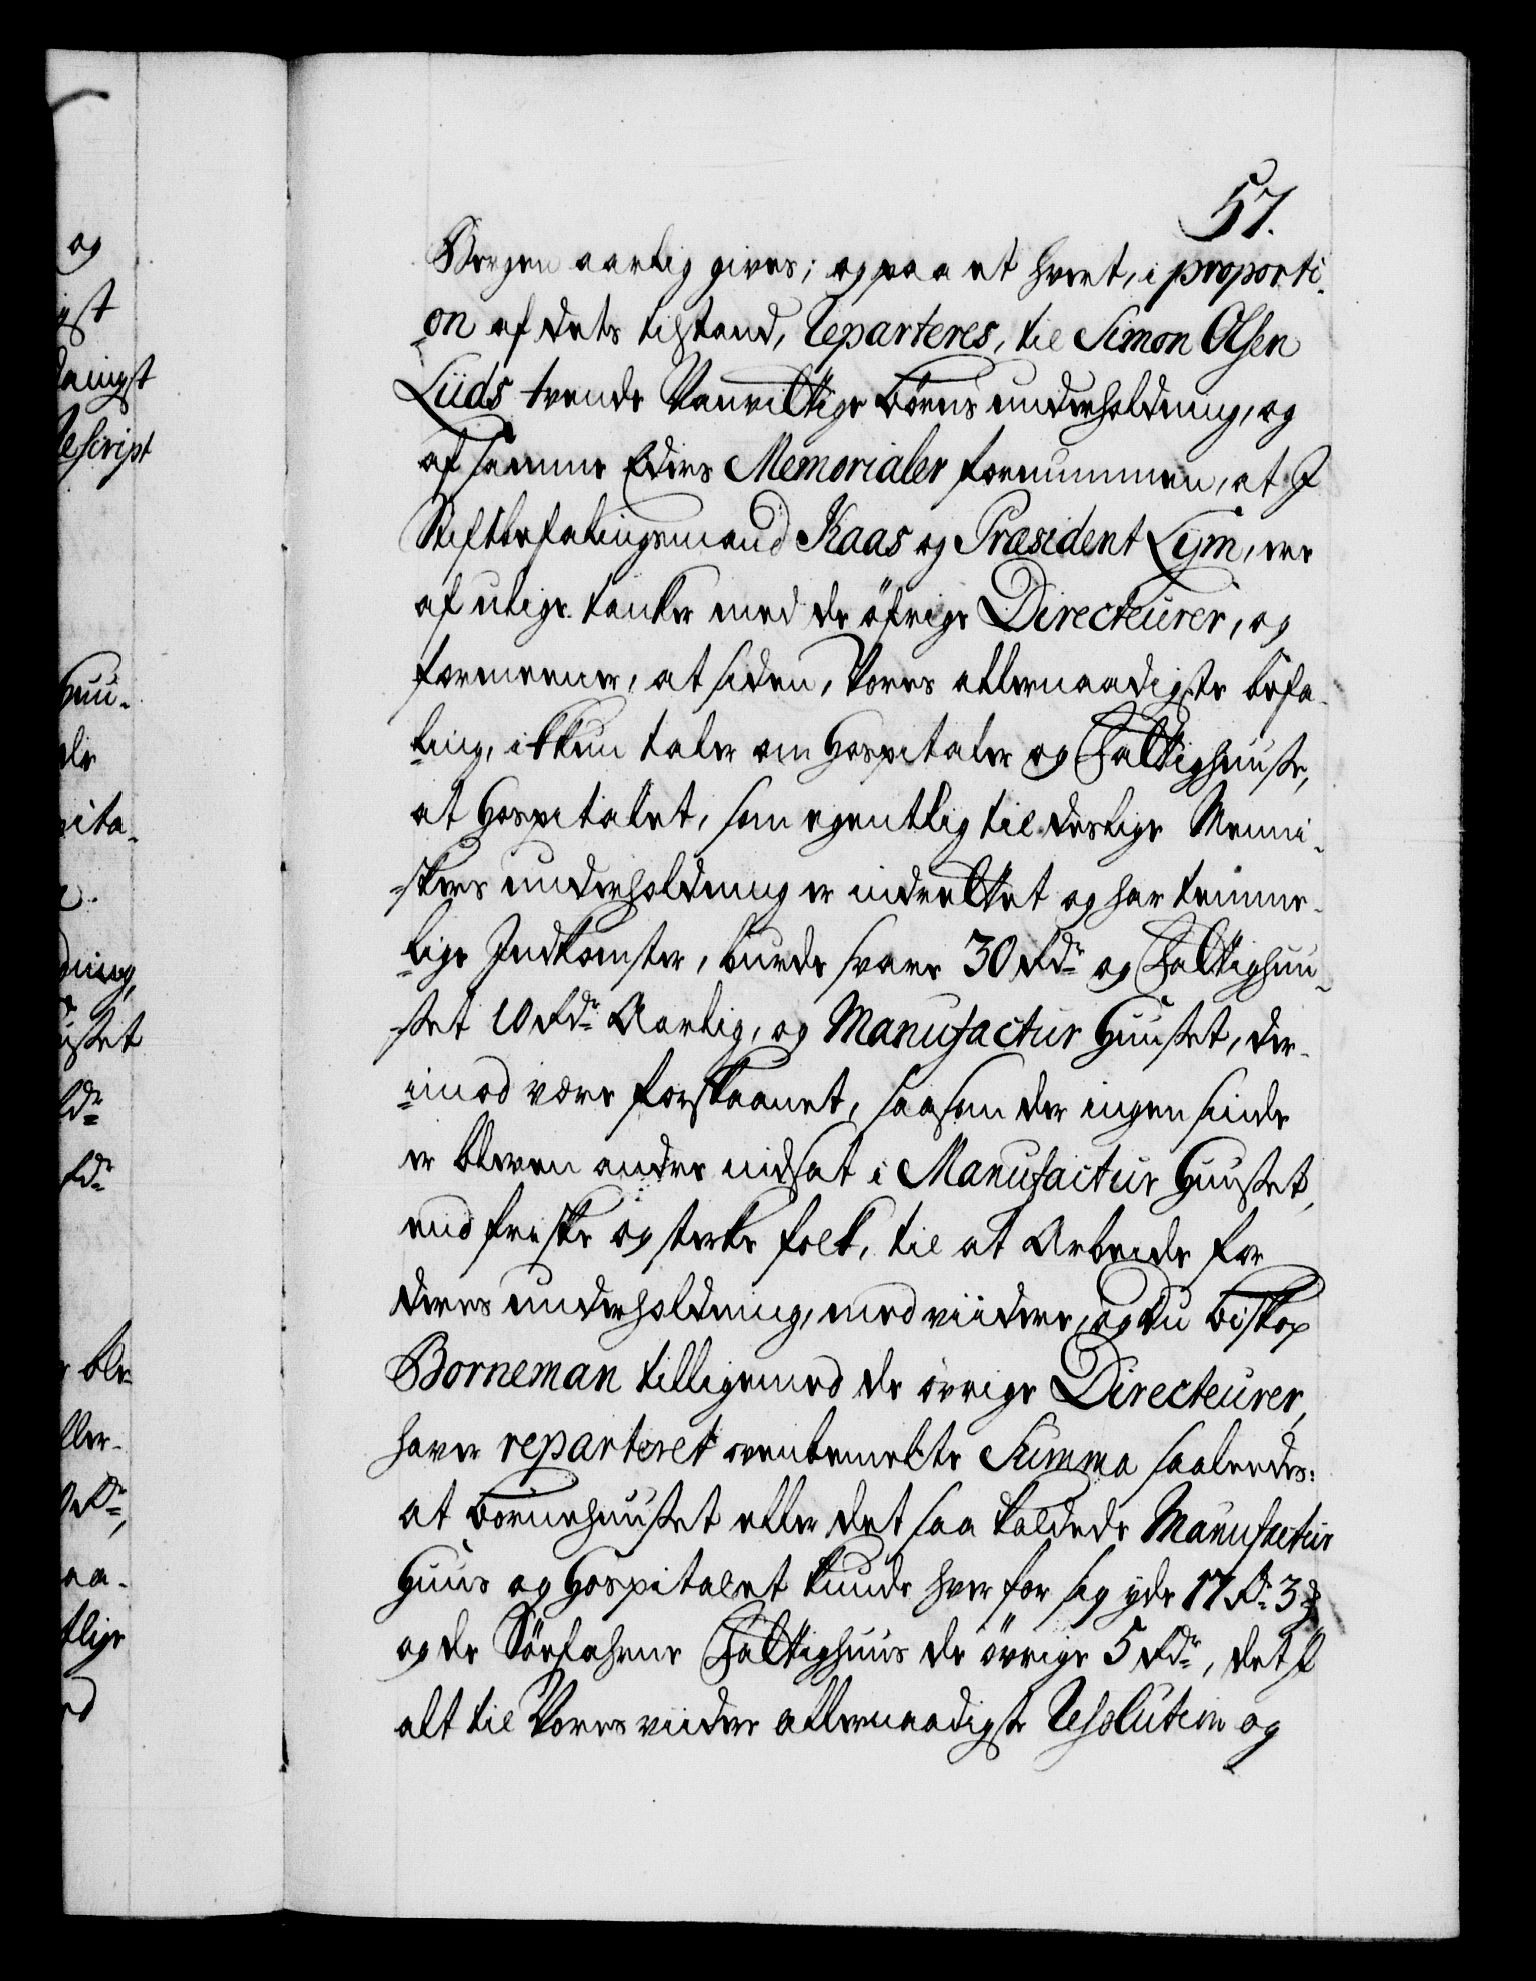 57.
Bergen aarlig gives; og paa et hvert, i proporti-
on af dets tilstand, reparteres, til Simon Olsen
Liids trende Vanvittige börns underholdning, og
af samme Eders Memorialer fornummen, at I
Stiftbefalingsmand Kaas og Præsident Lÿm, ere
af ulige tanker med de öfrige Directeurer, og
formeener, at siden, Vores allernaadigste befa-
ling, ikkun taler om Hospitaler og Fattighuuse,
at Hospitalet, som egentlig til deslige Menni-
skers underholdning er indrettet og har temme-
lige Indkomster, burde svare 30 Rdr og Fattighuu-
set 10 Rdr Aarlig, og Manufactur Huuset, der-
imod være forskaanet, saasom der ingen sinde
er bleven andre indsat i Manufactur Huuset,
end friske og sterke folk, til at Arbeide for
deres underholdning, med viidere, og du biskop
Borneman tilligemed de övrige Directeurer,
haver reparteret ovenbemelte Summa saaleedes:
at börnehuuset eller det saa kaldede Manufactur
Huus og Hospitalet kunde hver for sig yde 17 Rdr 3 ℳ
og de Söefahrne Fattighuus de övrige 5 Rdr, det
alt til Vores viidere allernaadigste Resolution og
og
Rescript
Huu-
ning,
ble-